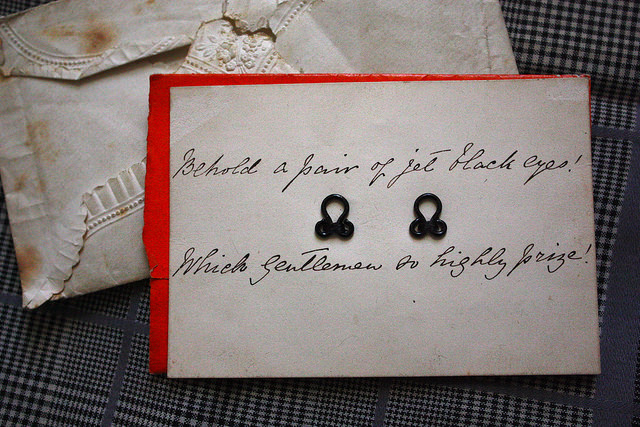 Behold a pair of jet black eyes!
Which Gentlemen so highly prize!